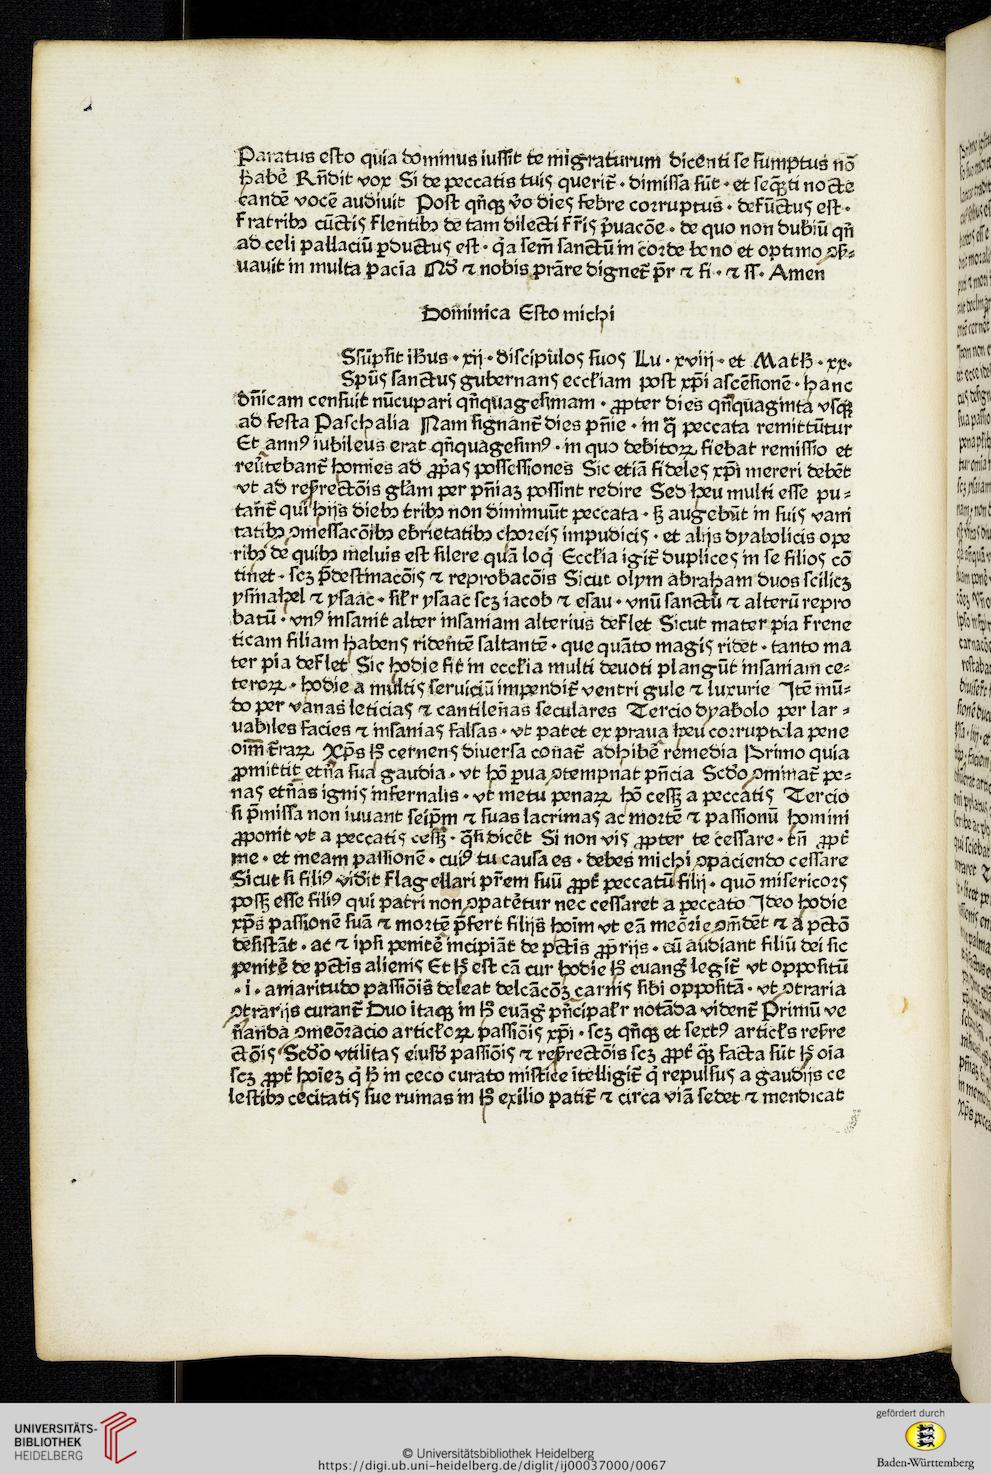 Paratus esto quia dominus iussit te migraturum dicenti se sumptus nō
habē Rn̄dit vox Si de peccatis tuis querit̄ · dimissa sūt · et seq̄ti nocte
eandē vocē audivit Post qn̄qꝫ v̓o dies febre corruptus · defūctus est ·
Fratribꝫ cūctis flentibꝫ de tam dilecti fr̄is p̓uacōe · de quo non dubiū qn̄
ad celi pallaciū ꝑductus est · q̓a sem̄ sanctū in corde bono et optimo ↄẜ⸗
vavit in multa pacīa Nob̓ ⁊ nobis prāre dignet̄ pr̄ ⁊ fi · ⁊ ss̄ · Amen
Dominica Esto michi
Ssūpsit ih̄us · xij · discipulos suos Lu · xviij · et Math̄ · xx ·
Spūs sanctus gubernans eccl̄iam post xp̄i ascēsionē · hanc
dn̄icam censuit nūcupari qn̄quagesimam · ꝓpter dies qn̄quaginta vsqꝫ
ad festa Paschalia Nam signant̄ dies pn̄ie · in q̄ peccata remittūtur
Et annꝰ iubileus erat qn̄quagesimꝰ · in quo debitoꝝ fiebat remissio et
reūtebant̄ homīes ad ꝓp̄as possessiones Sic etiā fideles xp̄i mereri debēt
vt ad resr̄rectōis gl̄am per pn̄iaꝫ possint redire Sed heu multi esse pu⸗
tant̄ qui hijs diebꝫ tribꝫ non diminuūt peccata · sꝫ augebūt in suis vani
tatibꝫ ↄmessacōibꝫ ebrietatibꝫ choreis impudicis · et alijs dyabolicis ope
ribꝫ de quibꝫ melius est silere quā loq̓ Eccl̄ia igit̄ duplices in se filios cō
tinet · scꝫ p̄destinacōis ⁊ reprobacōis Sicut olym abraham duos scilicꝫ
ysmahel ⁊ ysaac · sil̄r ysaac scꝫ iacob ⁊ esau · vnū sanctū ⁊ alterū repro
batū · vnꝰ insanit alter insaniam alterius deflet Sicut mater pia frene
ticam filiam habens ridentē saltantē · que quāto magis ridet · tanto ma
ter pia deflet Sic hodie fit in eccl̄ia multi devoti plangūt insaniam ce⸗
teroꝝ · hodie a multis serviciū impendit̄ ventri gule ⁊ luxurie Itē mū⸗
do per vanas leticias ⁊ cantilenas seculares Tercio dyabolo per lar⸗
vabiles facies ⁊ insanias falsas · vt patet ex praua heu corruptela pene
oīm t̄raꝝ Xp̄s hꝫ cernens diversa conat̄ adhibē remedia Primo quia
ꝓmittit etn̄a sua gaudia · vt hō ꝑua ↄtempnat pn̄cia Scd̄o ↄminat̄ pe⸗
nas etn̄as ignis infernalis · vt metu penaꝝ hō cessꝫ a peccatis Tercio
si p̄missa non iuvant seip̄m ⁊ suas lacrimas ac mortē ⁊ passionū homini
ꝓponit vt a peccatis cessꝫ · q̓si dicēt Si non vis ꝓpter te cessare · tn̄ ꝓpt̄
me · et meam passionē · cuiꝰ tu causa es · debes michi ↄpaciendo cessare
Sicut si filiꝰ vidit flagellari pr̄em suū ꝓpt̄ peccatū filij · quō misericors
possꝫ esse filiꝰ qui patri non ↄpatētur nec cessaret a peccato Ideo hodie
xp̄s passionē suā ⁊ mortē p̄fert filijs hoīm vt eā meōrie ↄm̄dēt ⁊ a pctō
desistāt · ac ⁊ ipsi penitē incipiāt de pctīs ꝓprijs · cū audiant filiū dei sic
penitē de pctīs alienis Et hꝫ est cā cur hodie hꝫ euang̓ legit̄ vt oppositū
· i · amaritudo passiōis deleat delcācōꝫ carnis sibi oppositā · vt ↄtraria
ↄtrarijs curant̄ Duo itaqꝫ in hꝫ euāg̓ pn̄cipal̄r notāda vident̄ Primū ve
n̄anda ↄmeōracio articl̄oꝝ passiōis xp̄i · scꝫ qn̄qꝫ et sextꝰ articl̄s resr̄e
ctōis Scd̄o vtilitas eiusd̄ passiōis ⁊ resr̄rectōis scꝫ ꝓpt̄ qꝫ facta sūt hꝫ oīa
scꝫ ꝓpt̄ hoīeꝫ q̓ hꝫ in ceco curato mistice ītelligit̄ q̓ repulsus a gaudijs ce
lestibꝫ cecitatis sue ruinas in hꝫ exilio patit̄ ⁊ circa viā sedet ⁊ mendicat
UNIVERSITÄTS-
BIBLIOTHEK
HEIDELBERG
© Universitätsbibliothek Heidelberg
https://digi.ub.uni-heidelberg.de/diglit/ij00037000/0067
gefördert durch
Baden-Württemberg